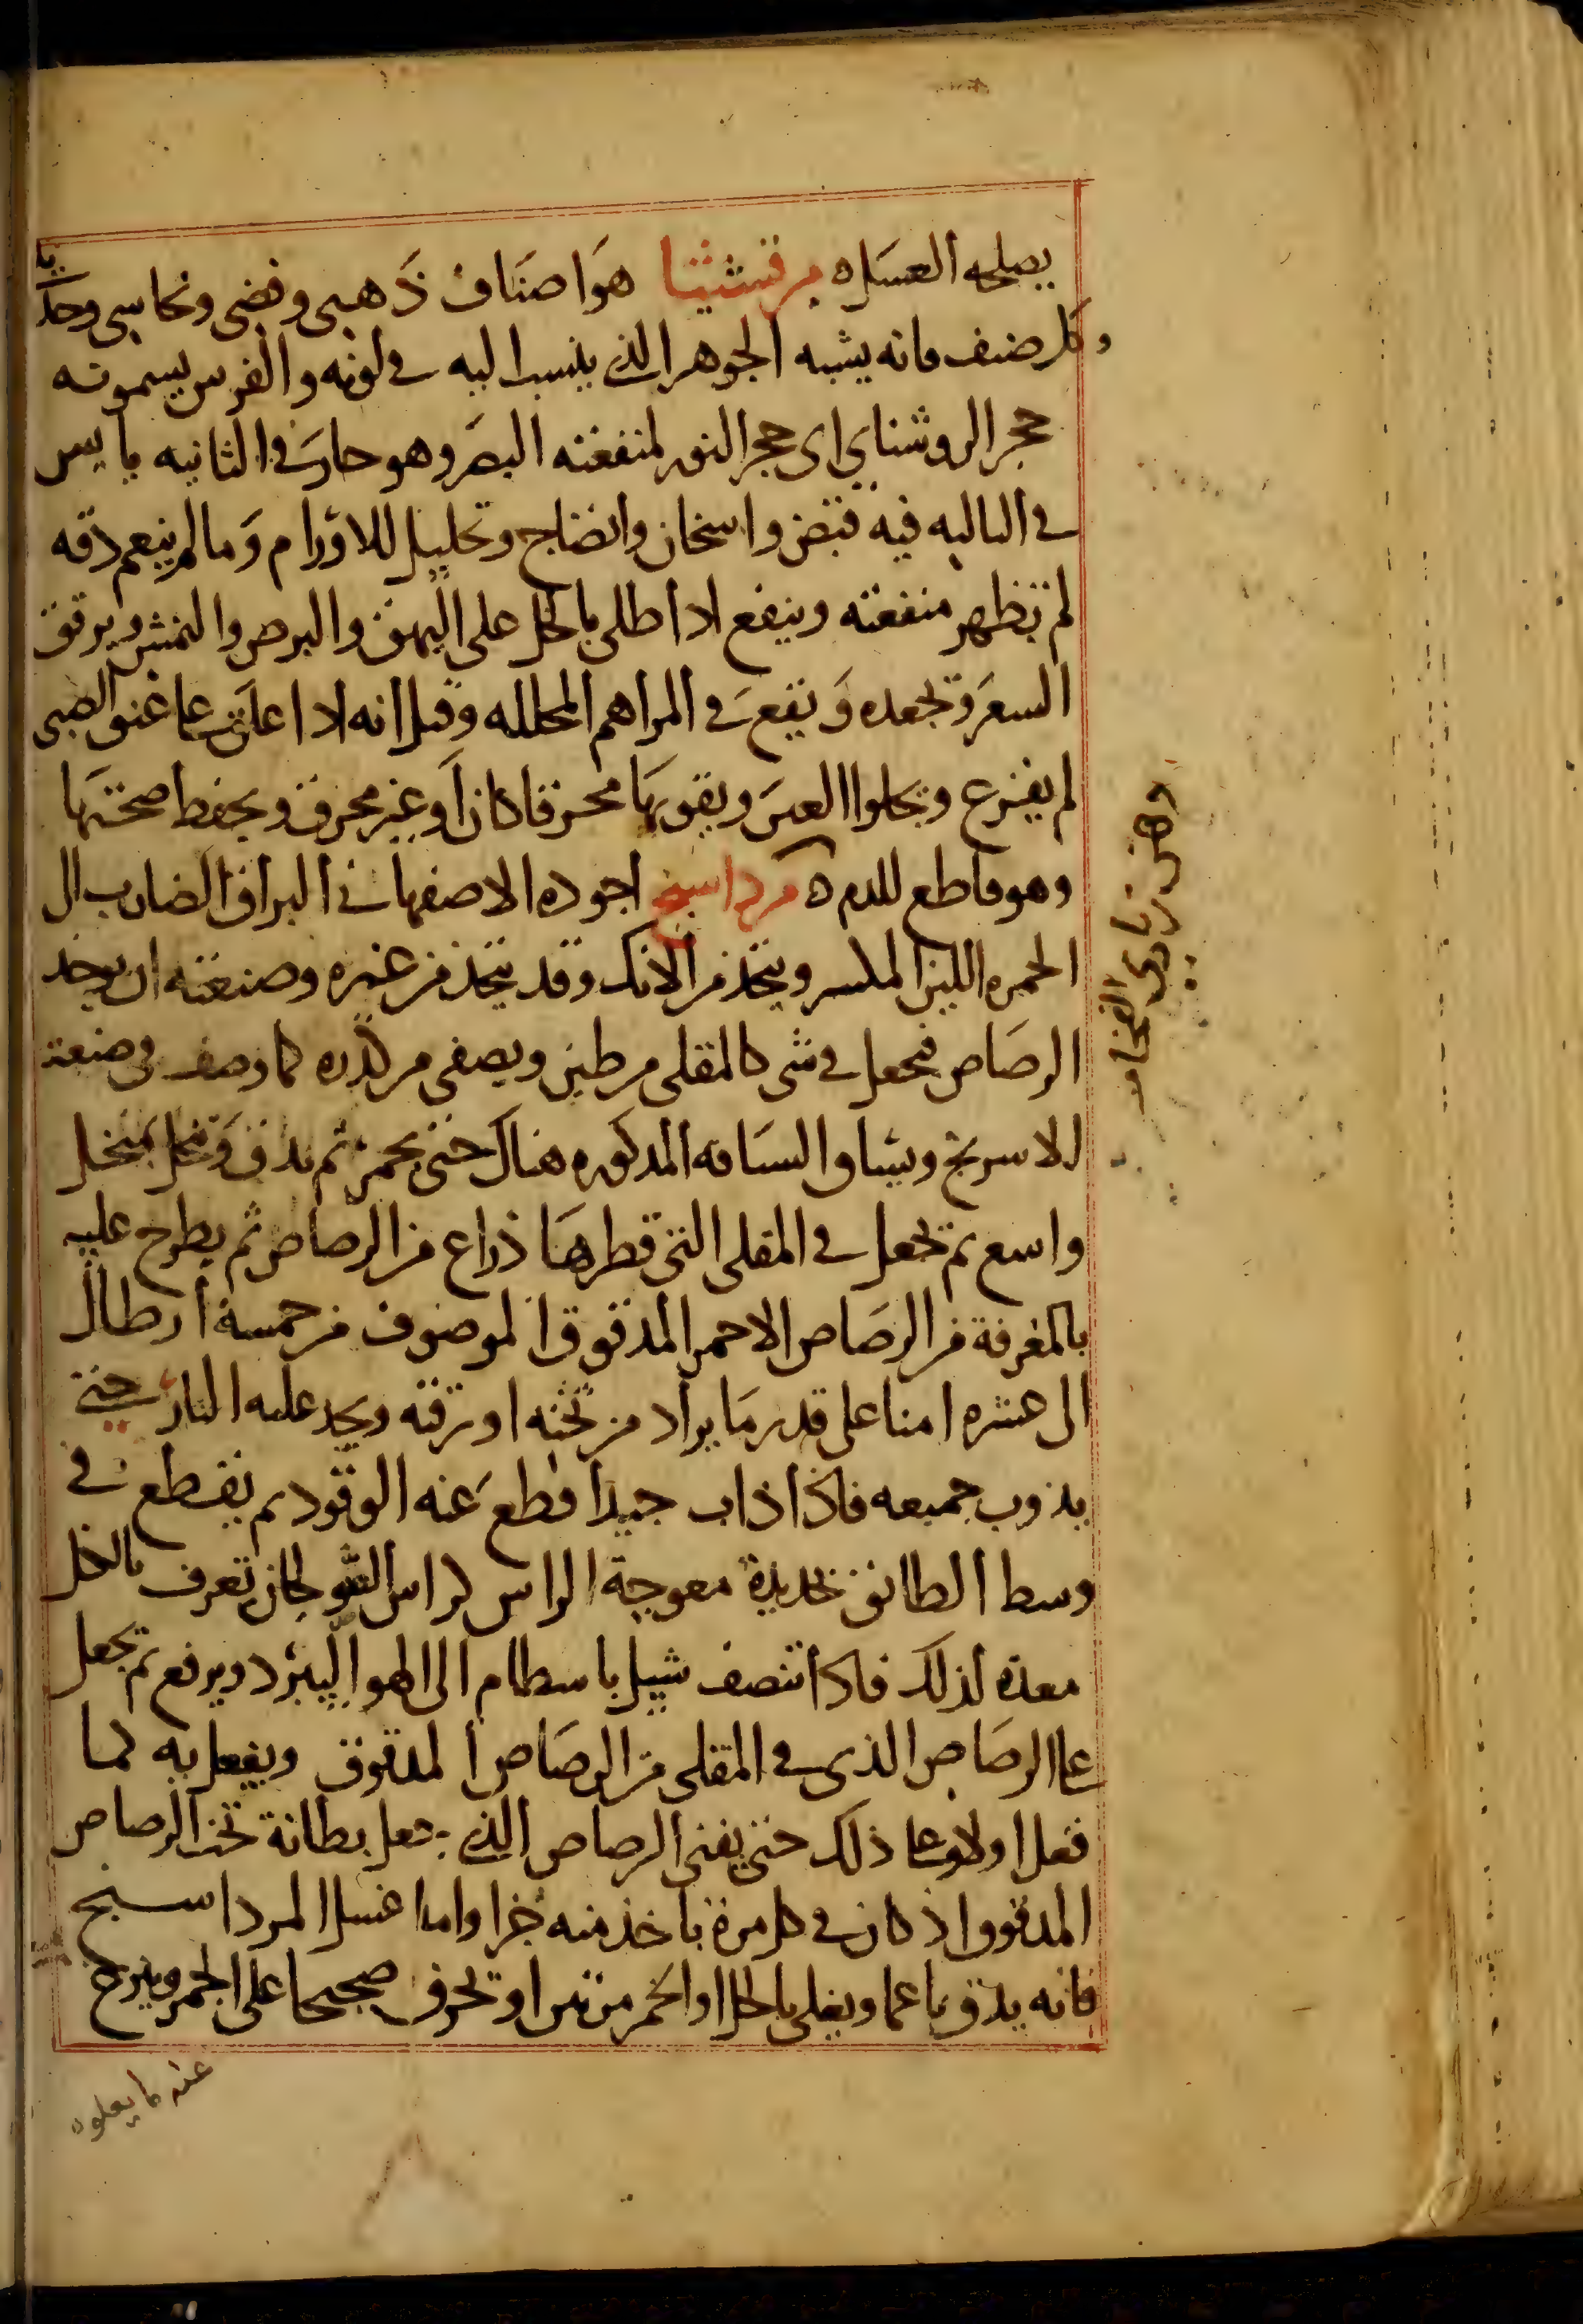 يصلحه العسل ه مرقشيثا هو اصناف ذهبى وفضى ونحاسى وحديا
وكل صنف فانه يشبه الجوهر الذى ينسب اليه فى لونه والفرس يسمونه
حجر الروشناى اى حجر النور لمنفعته البصر وهو حار فى الثانيه يابس
فى الثالثه فيه قبض واسخان وانضاج وتحليل للاورام وما لم ينعم دقه
لم تظهر منفعته وينفع اذا طلى بالخل على البهق والبرص والنمش ويرقق
الشعر وتجعده ويقع فى المراهم المحلله وقيل انه اذا علق على عنق الصبى
لم يفزع ويجلوا العين ويقويها محرقا كان او غير محرق ويحفظ صحتها
وهو قاطع للدم ه مرداسنج اجوده الاصفهانى البراق الضارب الى
الحمره اللين المكسر ويتخذ من الانك وقد يتخذ من غيره وصنعته ان يوخذ
الرصاص فيجعل فى شى كالمقلى من طين ويصفى من كدره كما وصف فى صنعة
الاسرنج ويساق السياقه المذكوره هناك حتى يحمر ثم يدق وينخل بمنخل
واسع ثم تجعل فى المقلى التى قطرها ذراع من الرصاص ثم يطرح عليه
بالمغرفة من الرصاص الاحمر المدقوق الموصوف من خمسة ارطال
الى عشره امنا على قدر ما يراد من ثخنه او رقته ويجد عليه النار حتى
يذوب جميعه فاذا ذاب جيدا قطع عنه الوقود ثم يقطع فى
وسط الطابق بحديدة معوجة الراس كراس الصولجان تعرف بالخل
معده لذلك فاذا انتصف شيل باسطام الى الهوا ليبرد ويرفع ثم يجعل
على الرصاص الذى فى المقلى من الرصاص المدقوق ويفعل به كما
فعل اولا وعلى ذلك حتى يفنى الرصاص الذى جعل بطانة تحت الرصاص
المدقوق اذ كان فى كل مرة ياخذ منه جزا واما غسل المرداسنج
فانه يدق ناعما ويغلى بالخل او الخمر مرتين او تحرق صحيحا على الجمر وينزح
عنه ما يعلوه